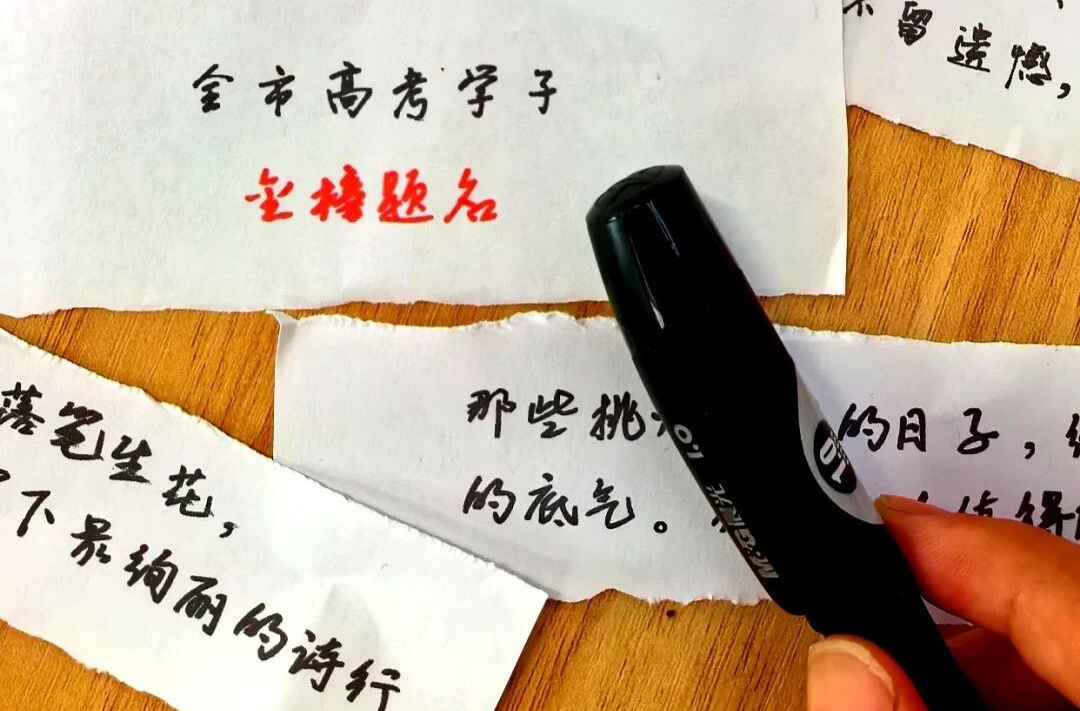 不留遗憾，
全市高考学子
金榜题名
那些挑 的日子，
的底气。 值得
落笔生花，
下最绚丽的诗行
M&G 晨光
1.0
1.0